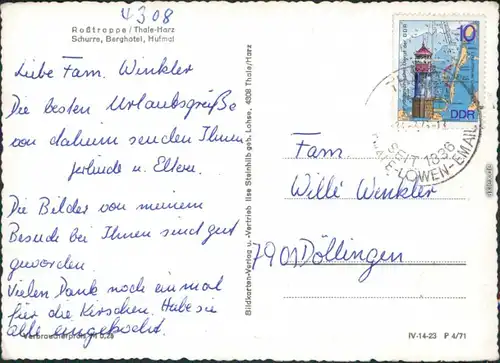 4308
Roßtrappe / Thale-Harz
Schurre, Berghotel, Hufmal
Liebe Fam. Winkler
Die besten Urlaubsgrüße
von daheim senden Ihnen
u. Eltern.
Die Bilder von meinem
Besuch bei Ihnen sind gut
geworden.
Vielen Dank noch einmal
für die Kirschen. Habe sie
alle eingekocht.
Verbraucherpreis M 0,25
Bildkarten-Verlag u. -Vertrieb. Ilse Steinhilb geb. Lohse, 4308 Thale/Harz
10
DDR
SEIT 1836
THALE-LÖWEN-EMAIL
Fam.
Willi Winkler
7901 Döllingen
IV-14-23 P 4/71